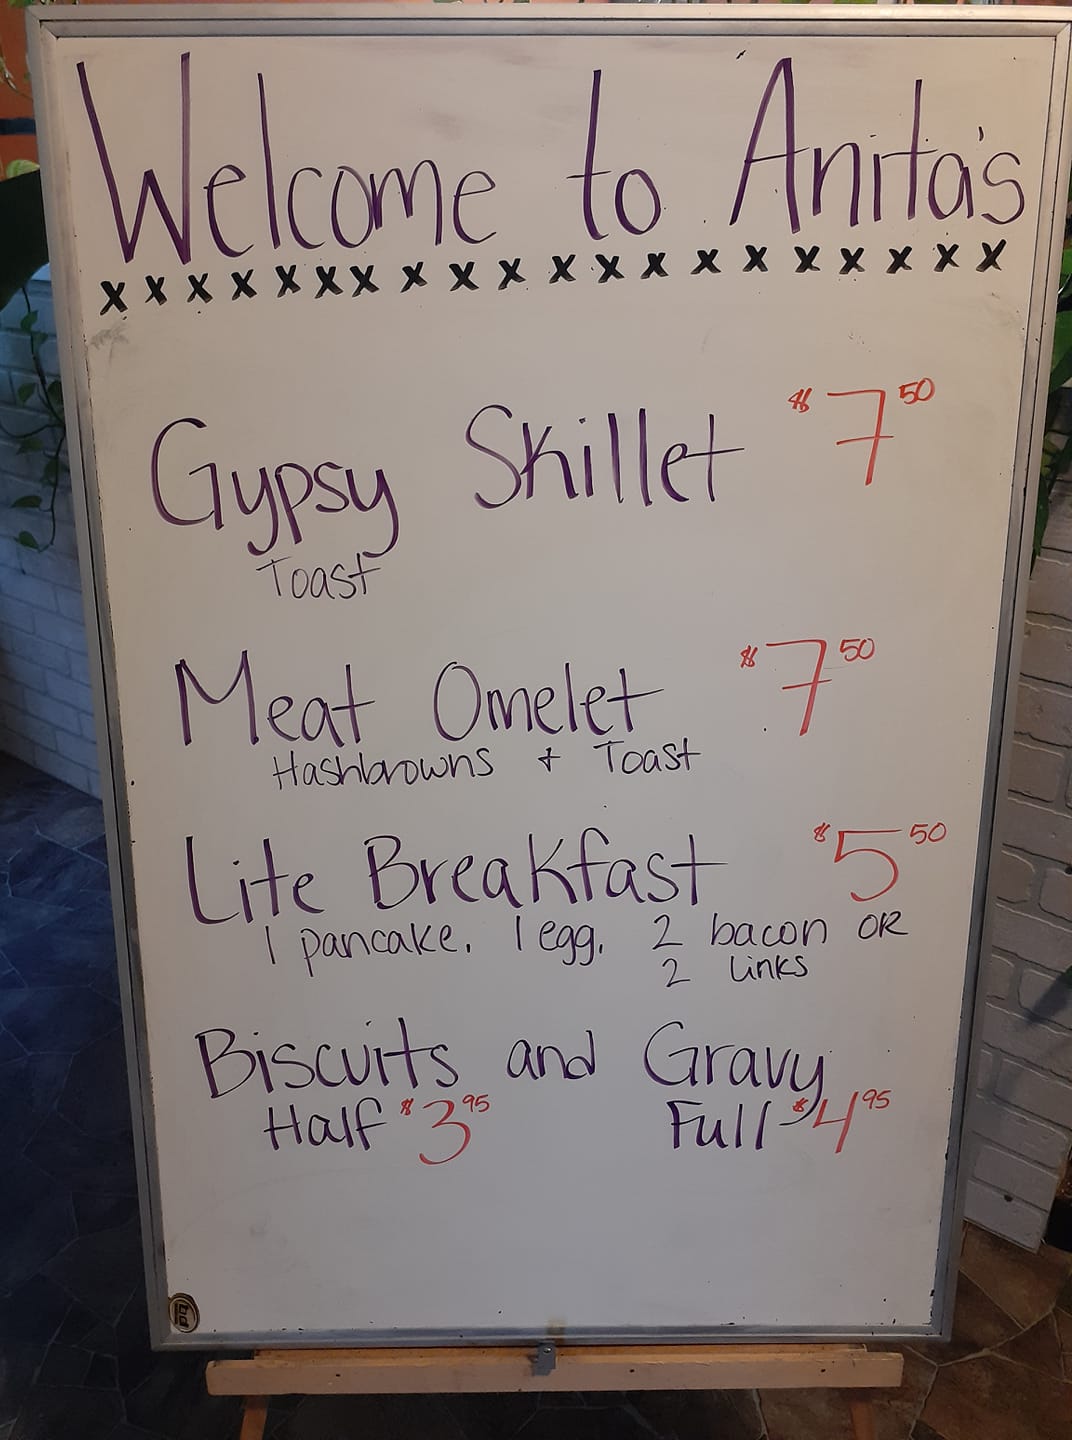 Welcome to Anita's
x x x x x x x x x x x x x x x x x x x x
Gypsy Skillet $7 50
Toast
Meat Omelet $7 50
Hashbrowns + Toast
Lite Breakfast $5 50
1 pancake, 1 egg, 2 bacon OR
2 links
Biscuits and Gravy
Half $3 95 Full $4 95